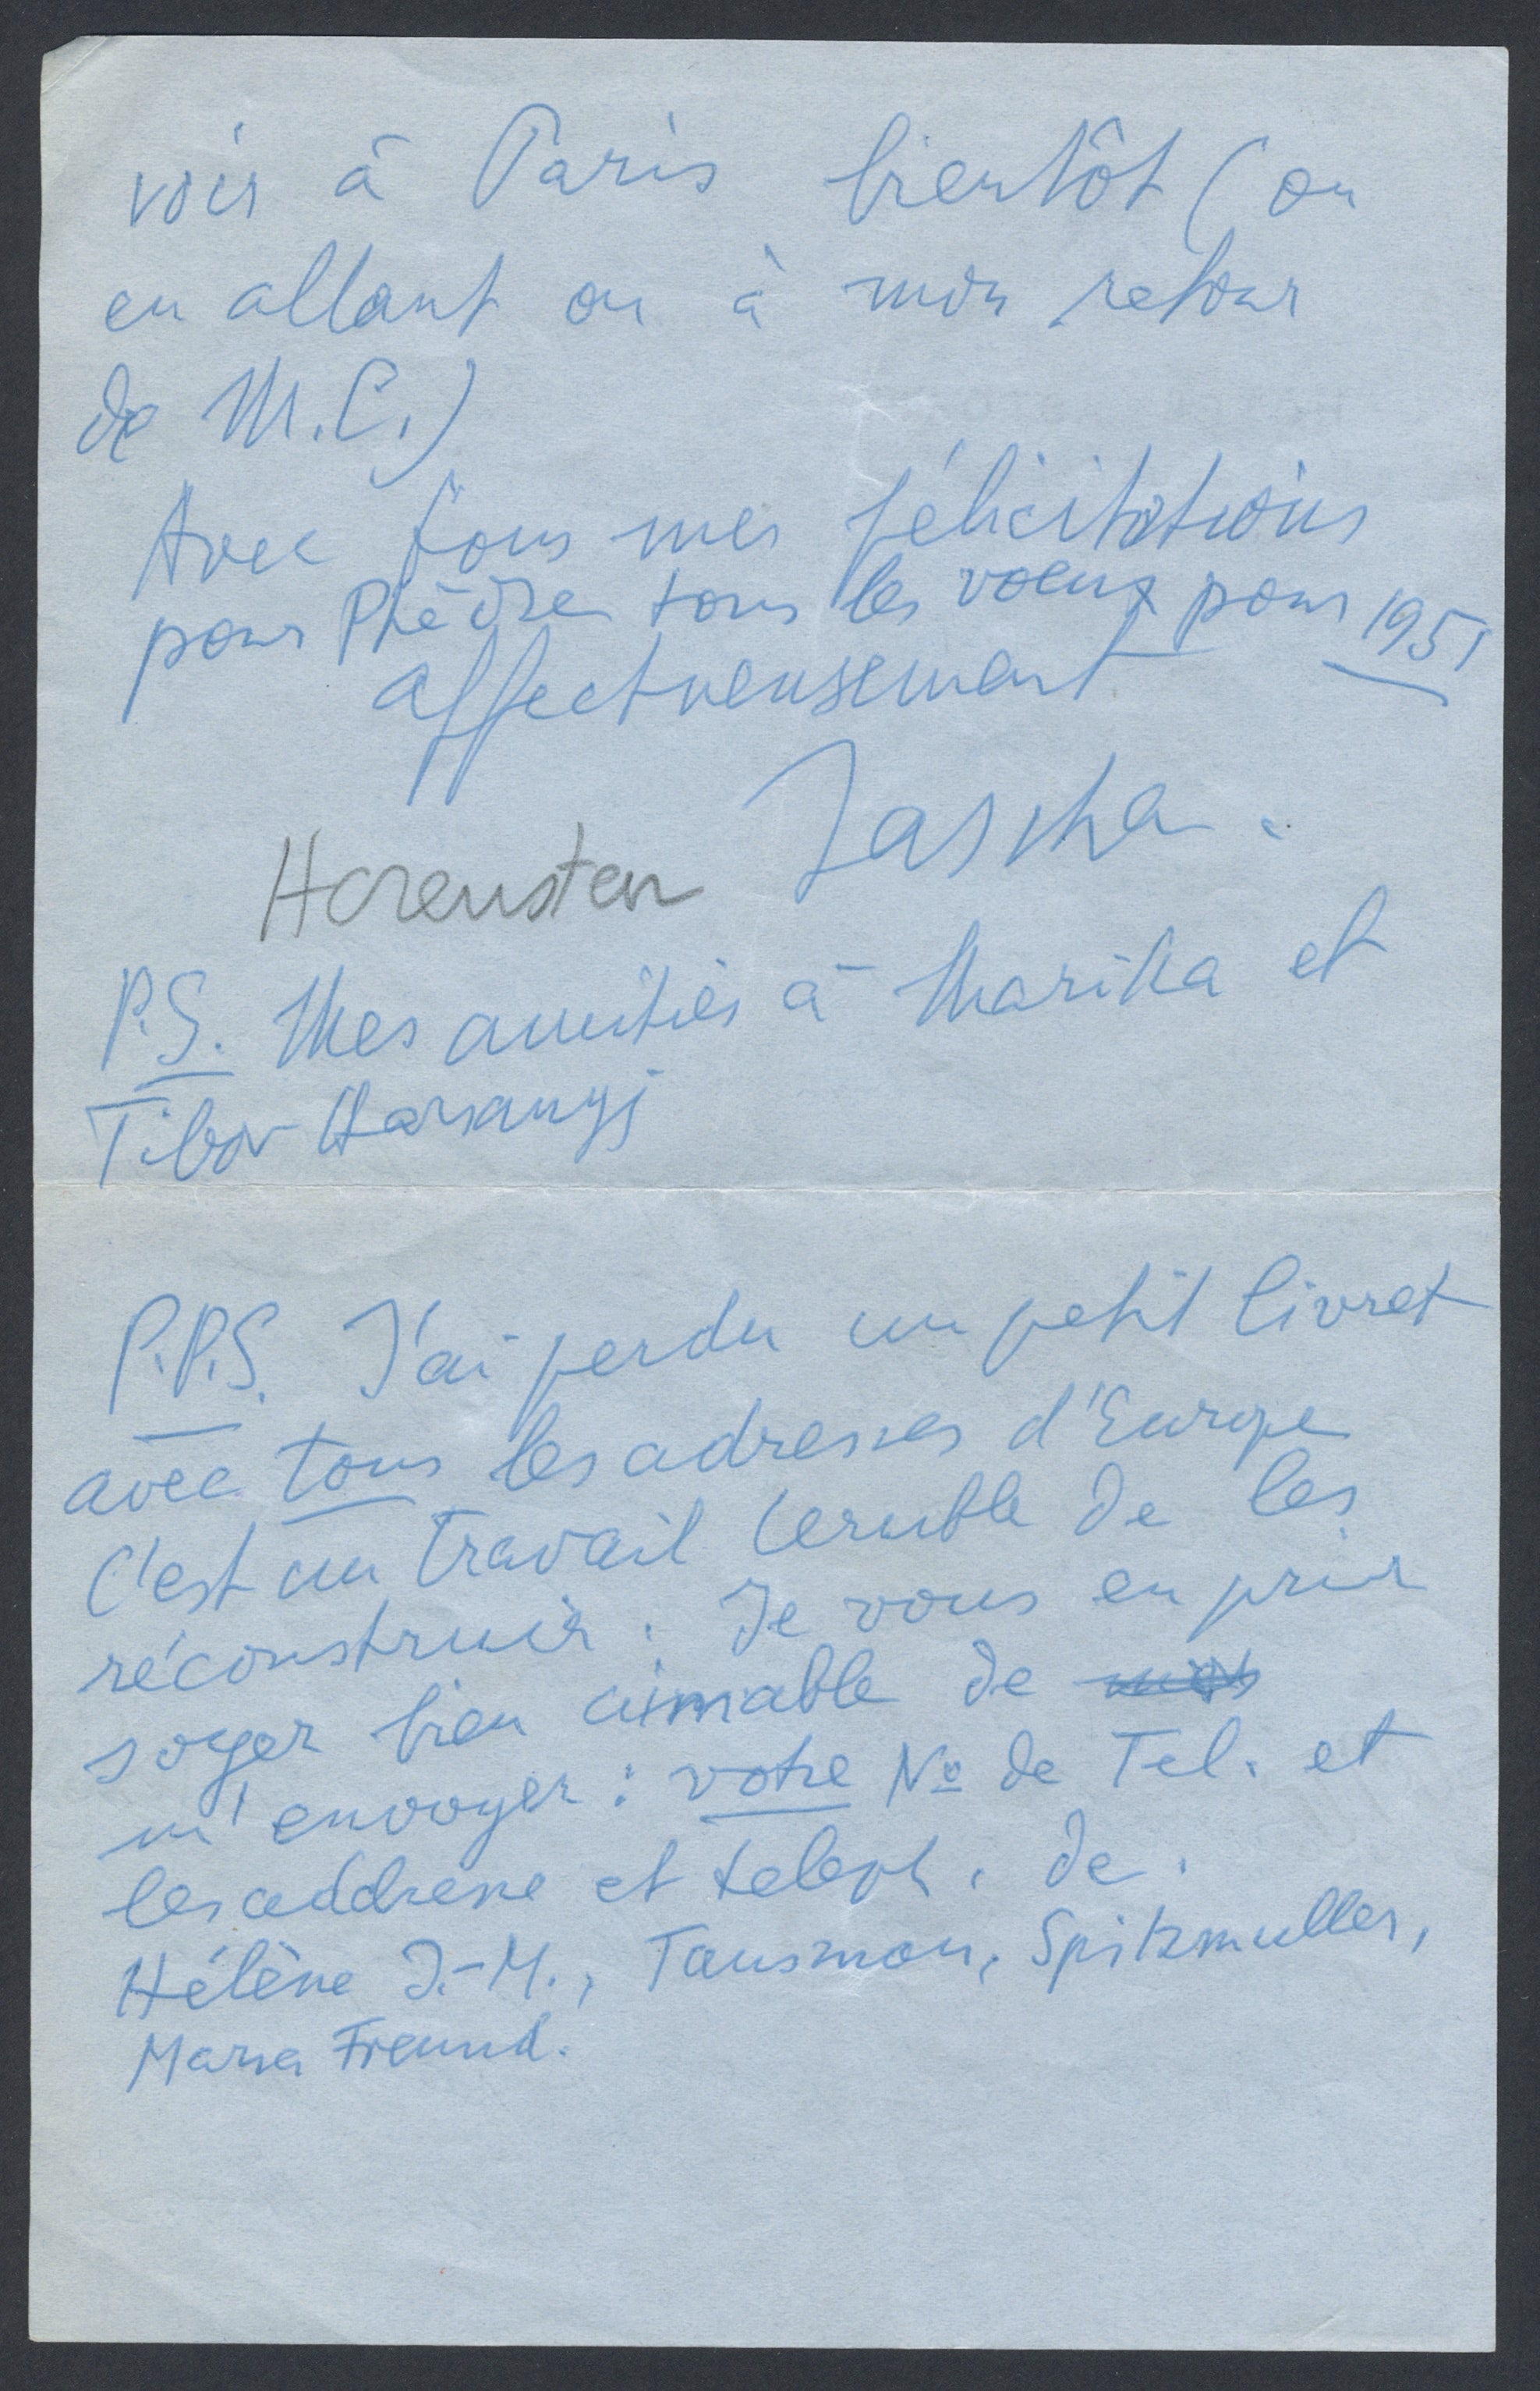 voir à Paris bientôt (ou
en allant ou à mon retour
de M.C.)
Avec tous mes félicitations
pour Phèdre tous les voeux pour 1951
affectueusement
Jascha.
Horenstein
P.S. Mes amitiés à Marika et
Tibor Harsanyj
P.P.S. J'ai perdu un petit livret
avec tous les adresses d'Europe
C'est un travail terrible de les
réconstruir. Je vous en prie
soyer bien aimable de
m'envoyer: votre No de Tel. et
les addresse et teleph. de.
Hélène J.-M., Tansman, Spitzmuller,
Marya Freund.